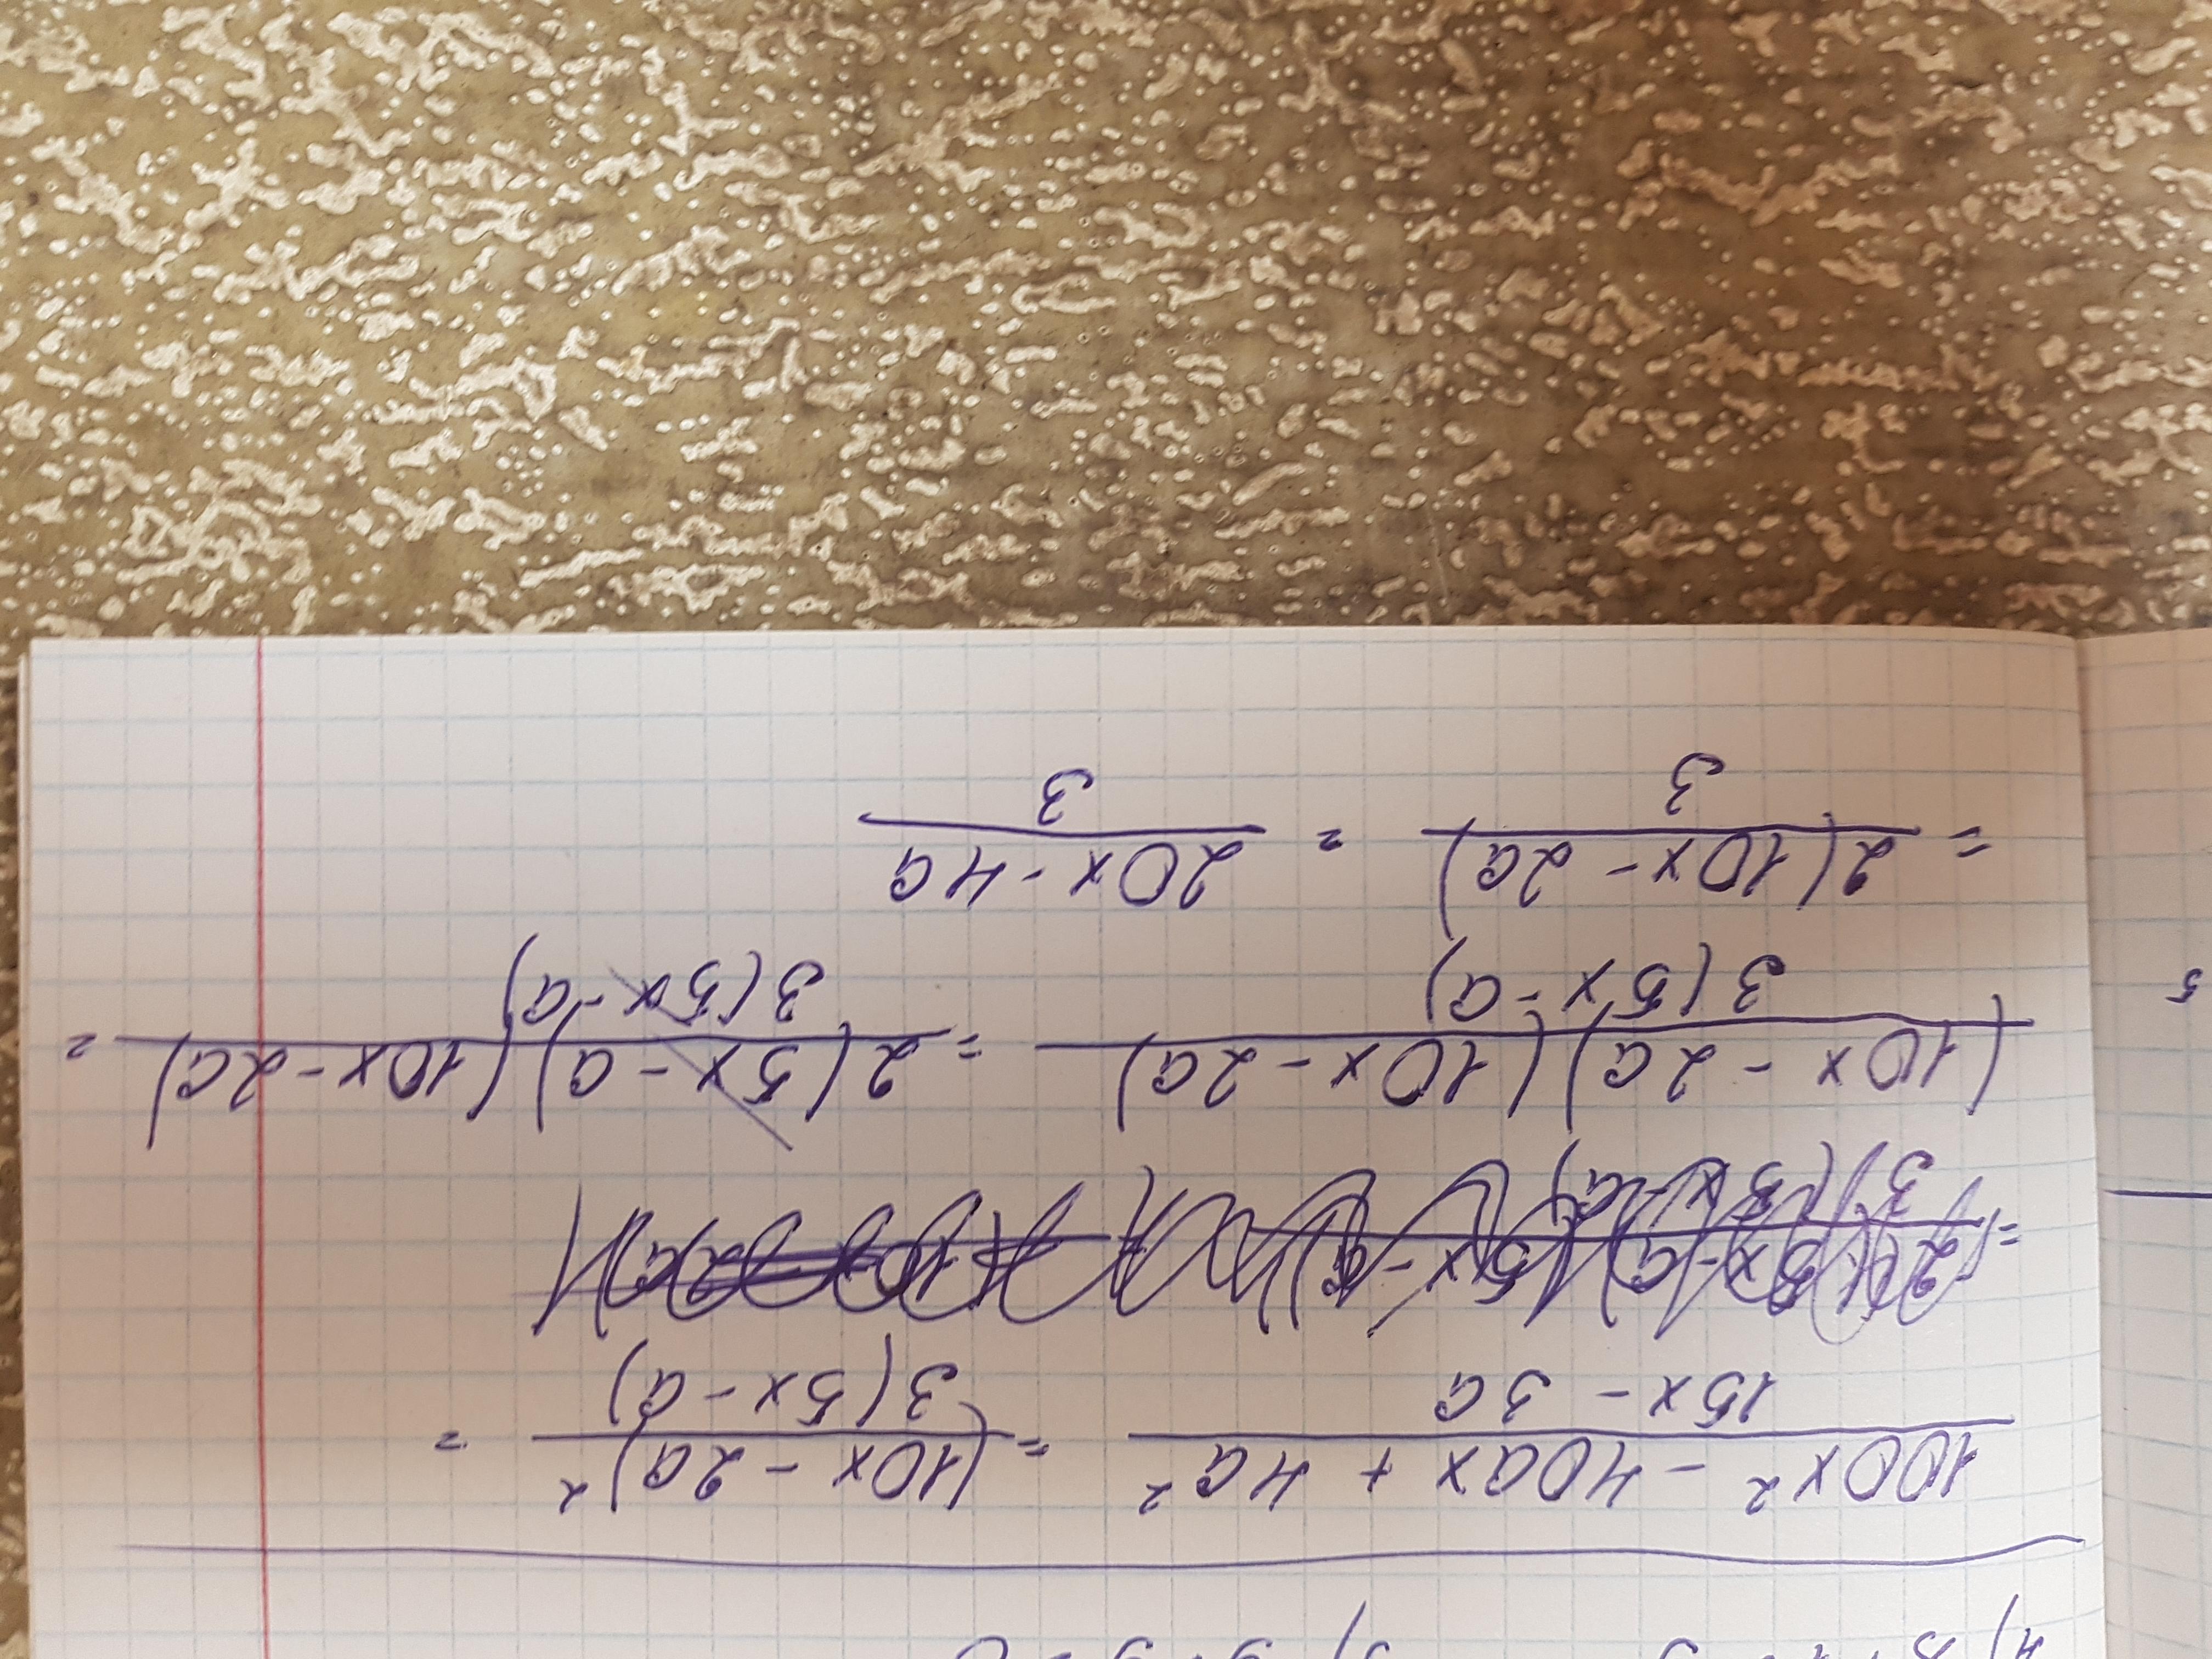 100x² - 40ax + 4a² / 15x - 3a = (10x - 2a)² / 3(5x - a) =
(10x - 2a)(10x - 2a) / 3(5x - a) = 2(5x - a)(10x - 2a) / 3(5x - a) =
= 2(10x - 2a) / 3 = 20x - 4a / 3
5